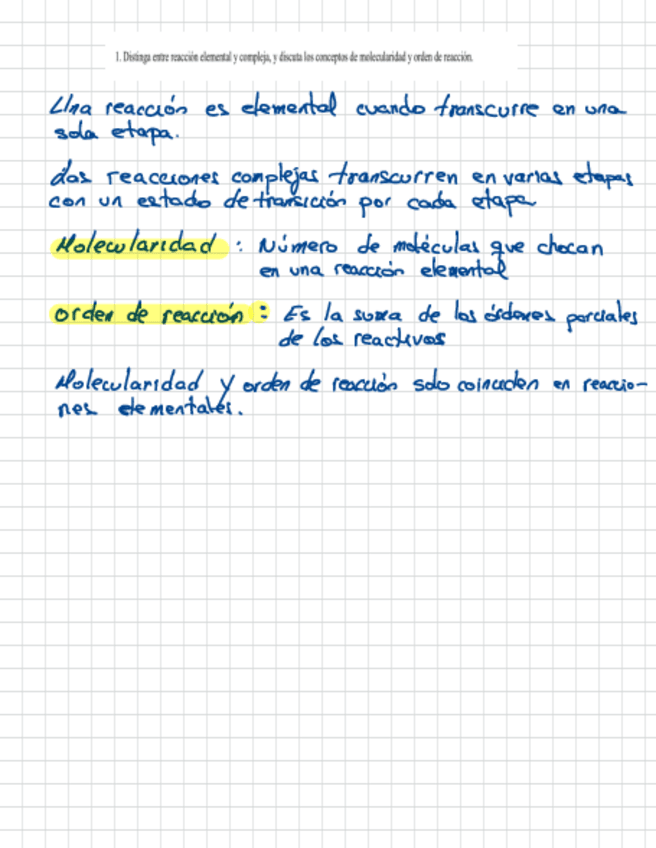 1. Distinga entre reacción elemental y compleja, y discuta los conceptos de molecularidad y orden de reacción.
Una reacción es elemental cuando transcurre en una
sola etapa.
Las reacciones complejas transcurren en varias etapas
con un estado de transición por cada etapa
Molecularidad : Número de moléculas que chocan
en una reacción elemental
orden de reacción : Es la suma de los órdenes parciales
de los reactivos
Molecularidad y orden de reacción solo coinciden en reaccio-
nes elementales.